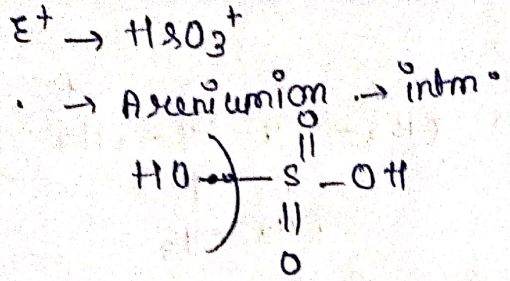 E⁺ → HSO₃⁺
. → Areniumion → intm.
O
||
HO — S — OH
||
O